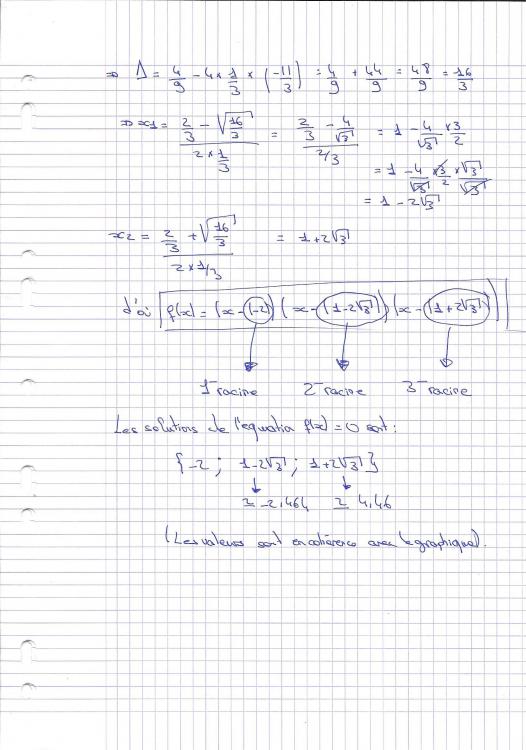 ⇒ Δ = 4/9 - 4 × 1/3 × (-11/3) = 4/9 + 44/9 = 48/9 = 16/3
⇒ x1 = (2/3 - √(16/3)) / (2 × 1/3) = (2/3 - 4/√3) / (2/3) = 1 - 4/√3 × 3/2
= 1 - 4/√3 × 3/2 × √3/√3
= 1 - 2√3
x2 = (2/3 + √(16/3)) / (2 × 1/3) = 1 + 2√3
d'où f(x) = (x - (-2)) (x - (1 - 2√3)) (x - (1 + 2√3))
1 racine 2 racine 3 racine
Les solutions de l'equation f(x) = 0 sont :
{-2 ; 1 - 2√3 ; 1 + 2√3}
≃ -2,464 ≃ 4,46
(Les valeurs sont en cohérence avec le graphique).